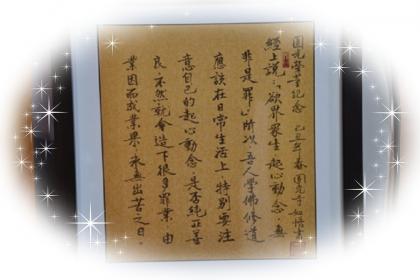 圓光禪堂紀念 己丑年春圓光寺如悟書
經上說：「欲界眾生起心動念，無
非是罪」所以，吾人學佛修道
應該在日常生活上，特別要注
意自己的起心動念，是否純正善
良，不然就會造下很多罪業，由
業因而成業果，永無出苦之日。